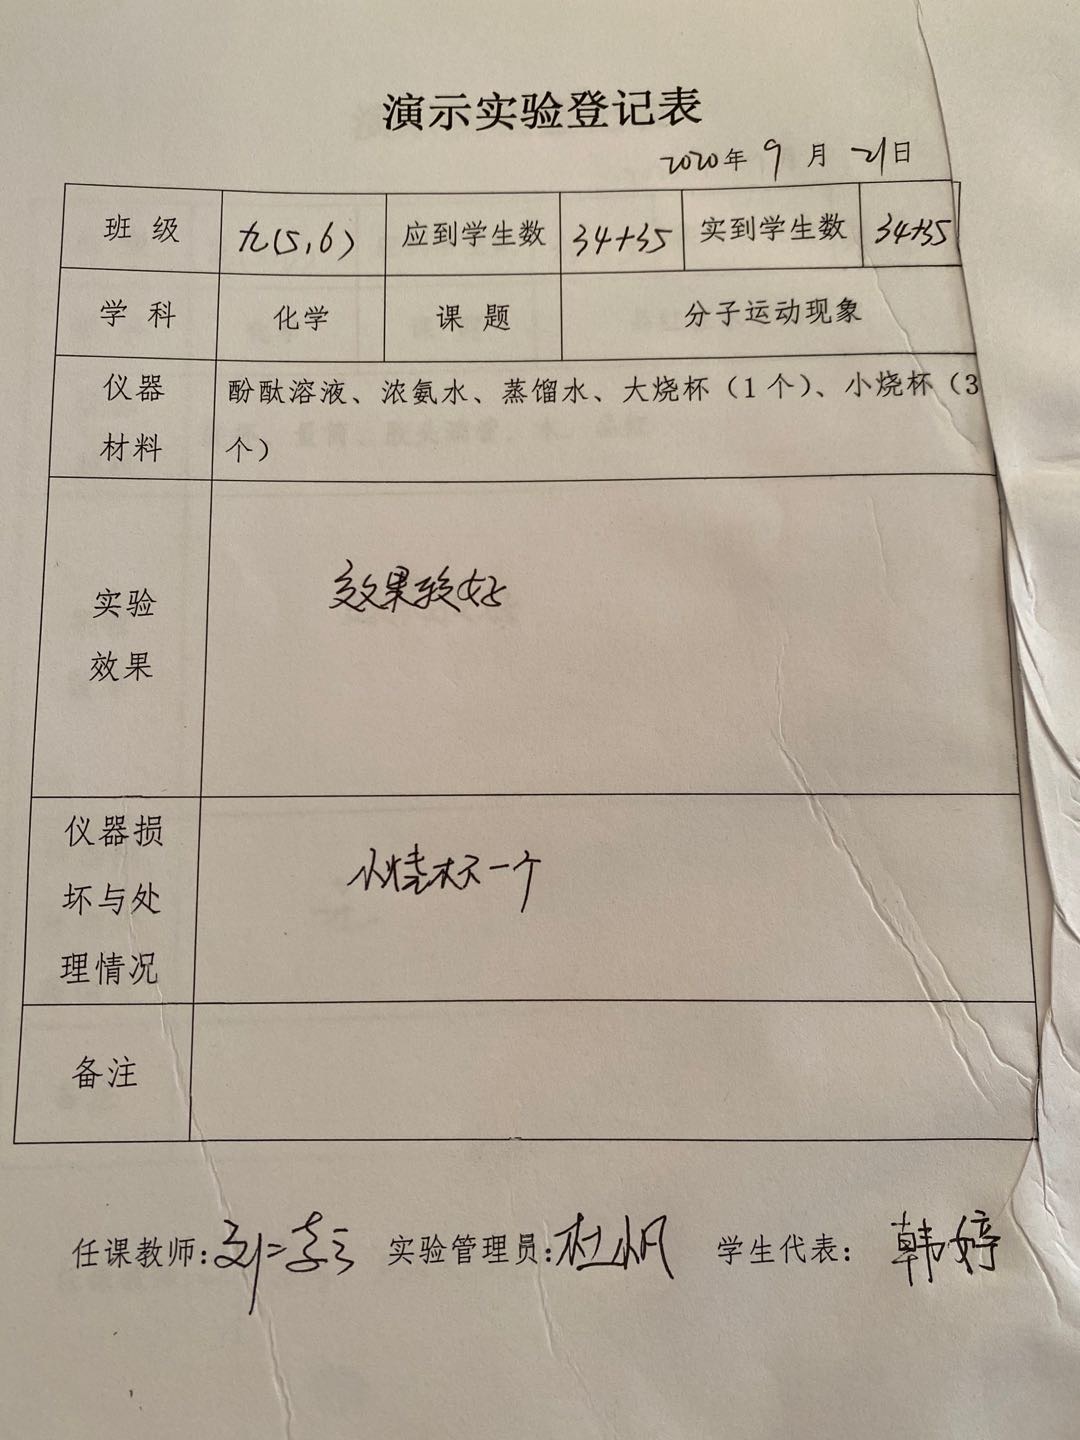 演示实验登记表
2020年 9 月 21日
班 级 九(5,6) 应到学生数 34+35 实到学生数 34+35
学 科 化学 课 题 分子运动现象
仪器
材料
酚酞溶液、浓氨水、蒸馏水、大烧杯（1个）、小烧杯（3
个）
实验
效果
效果较好
仪器损
坏与处
理情况
小烧杯一个
备注
任课教师: 刘 实验管理员: 杜帆 学生代表: 韩婷